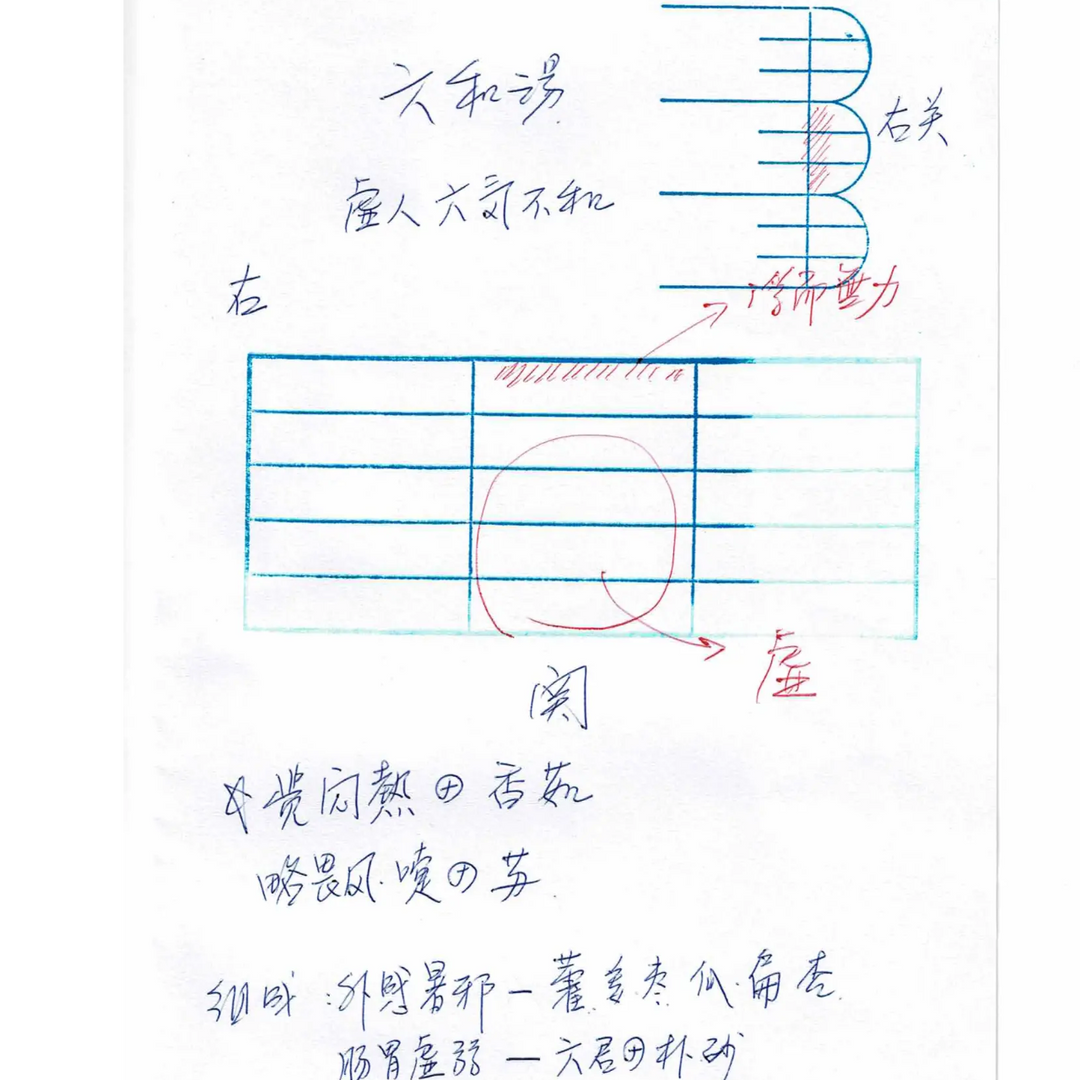 六和湯
右关
虚人六気不和
右
浮而無力
虚
関
覚闷熱⊕香茹
略畏风.嚏⊕苏
组成:外感暑邪一藿 枣瓜.扁杏
肠胃虚弱一六君⊕朴砂